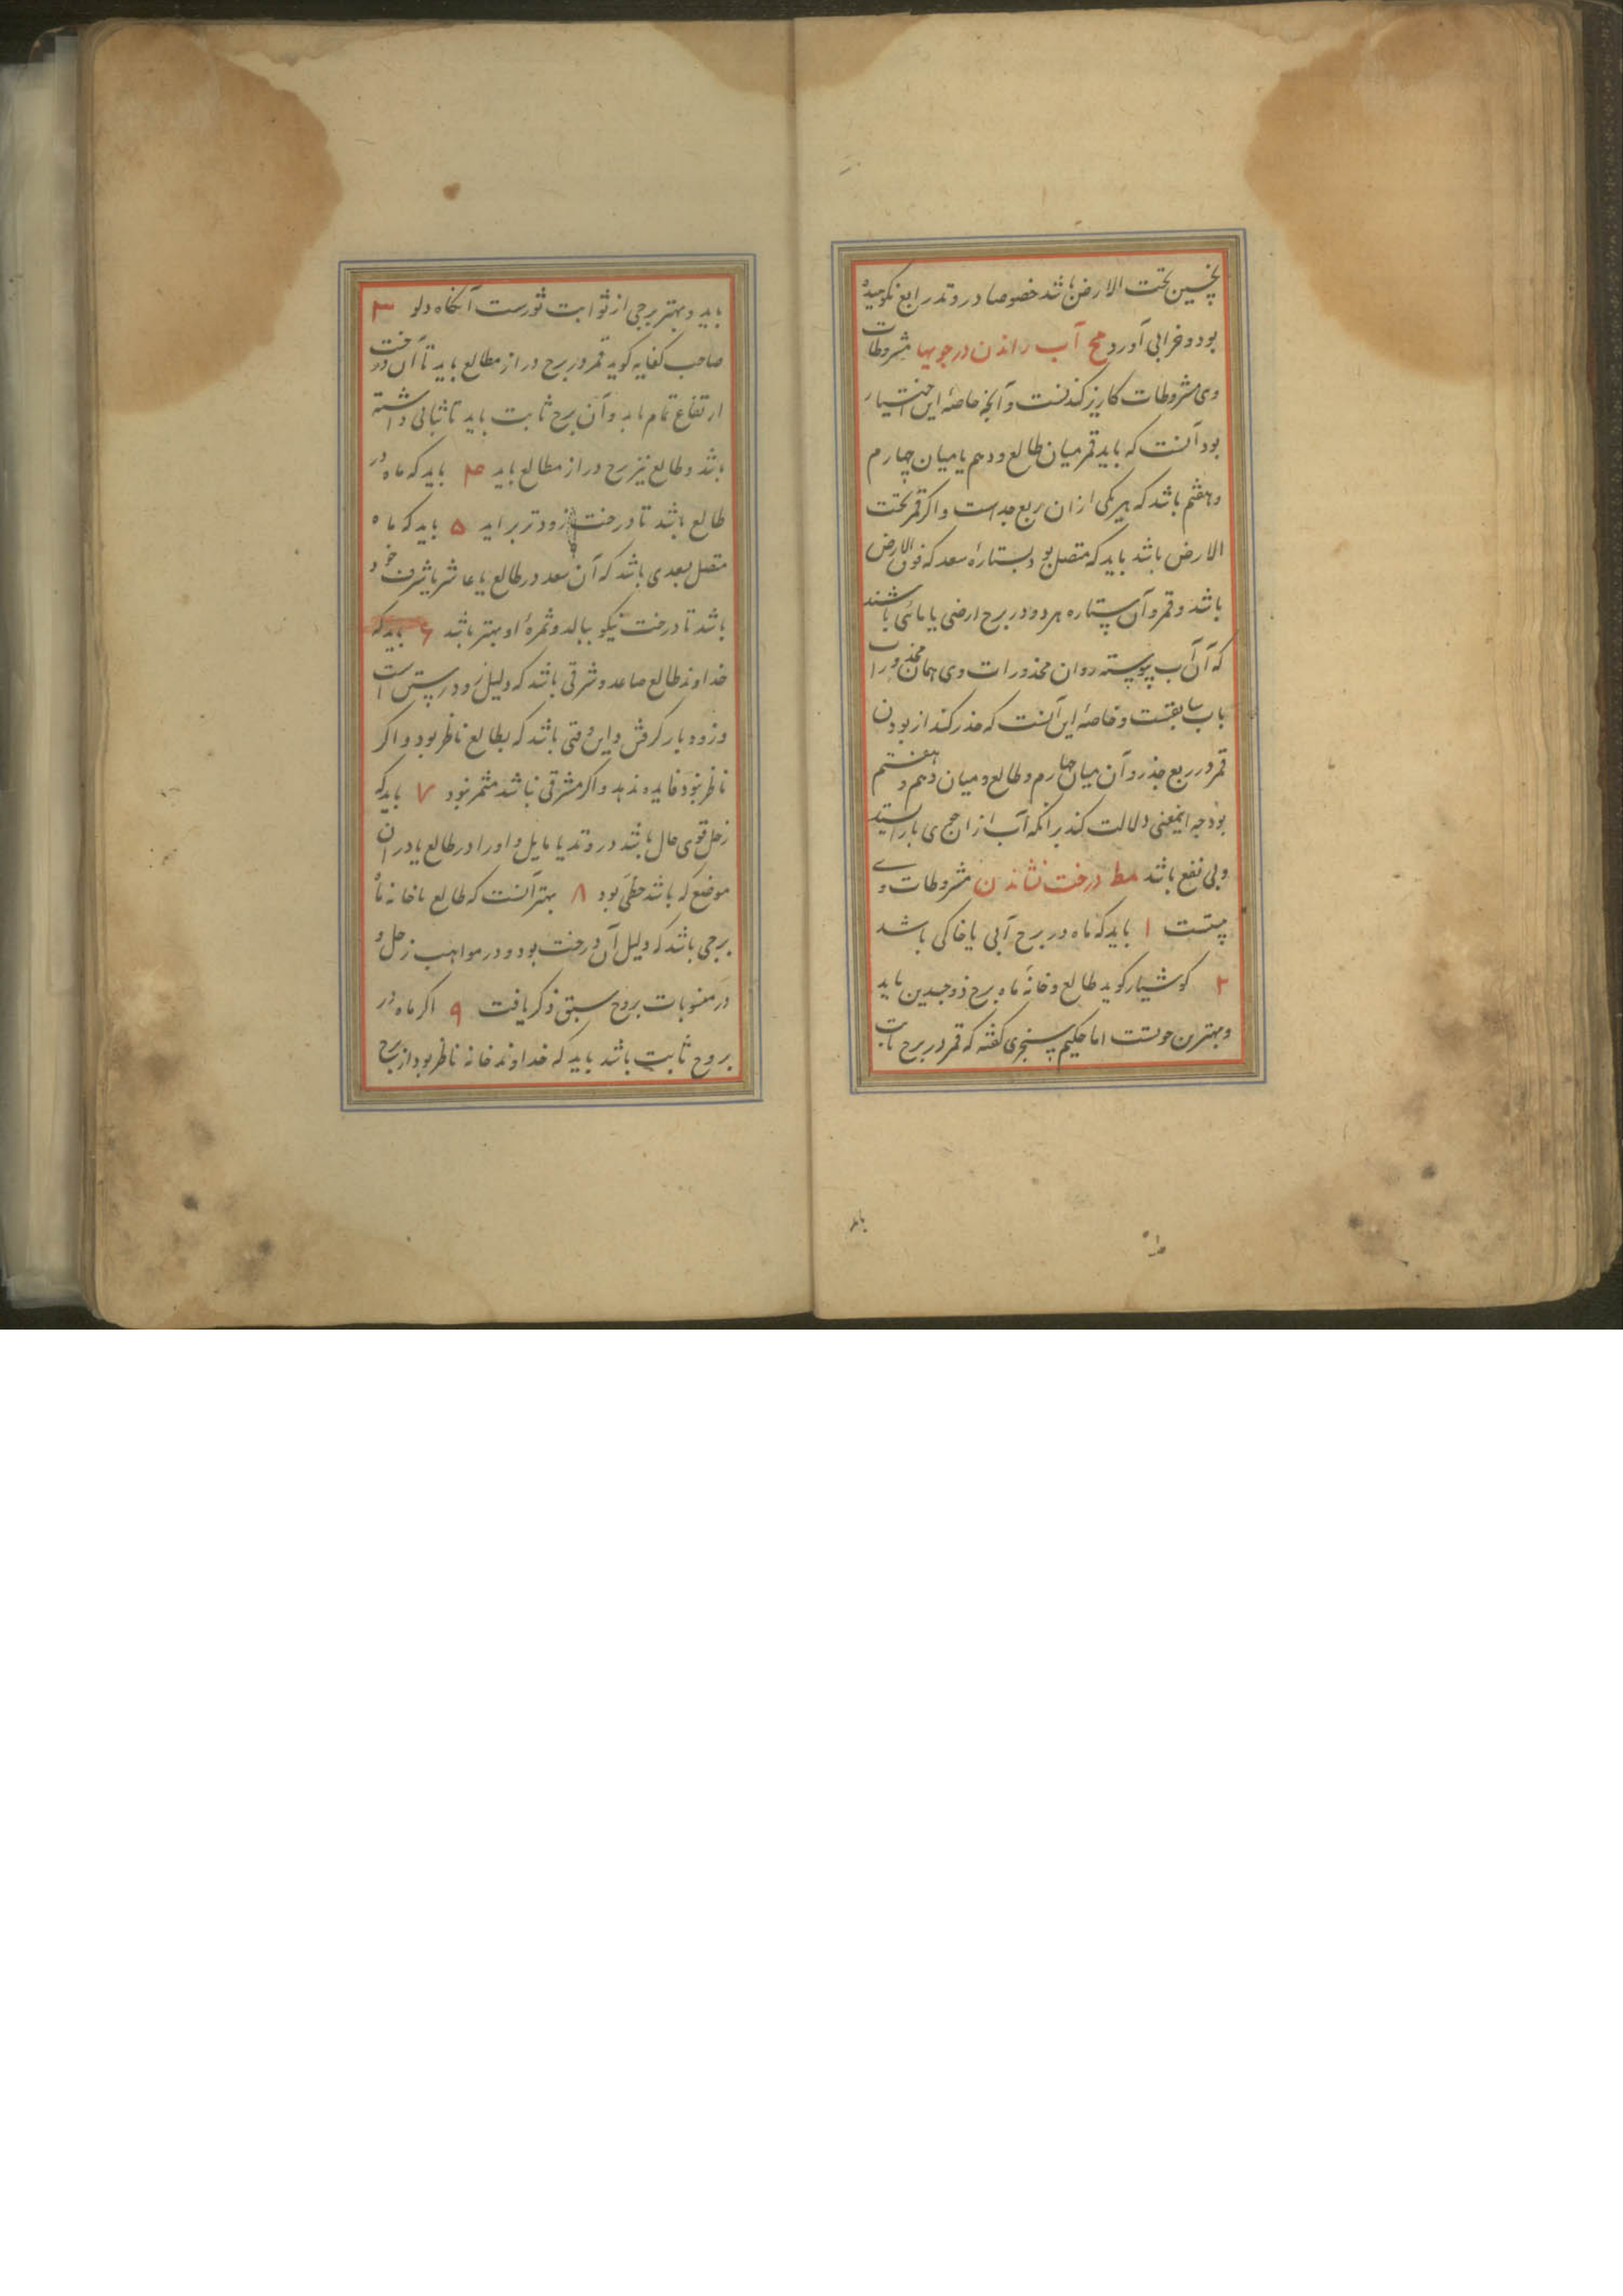 بخسین تحت الارض باشد خصوصا در وتد رابع نکوهیده
بود و خرابی آورد مح آب راندن در جویها مشروطات
وی مشروطات کاریز کندنست و آنچه خاصهٔ این اختیار
بود آنست که باید قمر میان طالع و دهم یا میان چهارم
و هفتم باشد که هر یکی ازان ربع جداست و اکر قمر تحت
الارض باشد باید که متصل بود بستارهٔ سعد که فوق الارض
باشد و قمر و آن ستاره هر دو در برج ارضی یا مائی باشند
که آن آب پیوسته روان محذورات وی همان محذورات
باب سابقست و خاصهٔ این آنست که حذر کند از بودن
قمر در ربع جذر و آن میان چهارم و طالع و میان دهم و هفتم
بود چه اینمعنی دلالت کند برانکه آب ازان جوی باز استید
و بی نفع باشد مط درخت نشاندن مشروطات وی
۱ باید که ماه در برج آبی یا خاکی باشد
۲ کوشیار کوید طالع و خانهٔ ماه برج ذو جسدین باید
و بهترین حوتست اما حکیم سنجری کفته که قمر در برج ثابت
باید
باید و بهتر برجی از ثوابت ثورست آنکاه دلو ۳
صاحب کفایه کوید قمر در برج دراز مطالع باید تا آن درخت
ارتفاع تمام یابد و آن برج ثابت باید تا ثباتی داشته
باشد و طالع نیز برج دراز مطالع باید ۴ باید که ماه در
طالع باشد تا درخت زودتر براید ۵ باید که ماه
متصل بسعدی باشد که آن سعد در طالع یا عاشر یا شرف خود
باشد تا درخت نیکو ببالد و ثمرهٔ او بهتر باشد ۶ باید که
خداوند طالع صاعد و شرقی باشد که دلیل زود رستن است
و زود بار کرفتن و این وقتی باشد که بطالع ناظر بود و اکر
ناظر نبود فایده ندهد و اکر مشرقی نباشد مثمر نبود ۷ باید که
زحل قوی حال باشد در وتد یا مایل و اورا در طالع یا دران
موضع که باشد حظی بود ۸ بهتر آنست که طالع یا خانه ماه
برجی باشد که دلیل آن درخت بود و در مواهب زحل و
در منسوبات بروج سبق ذکر یافت ۹ اکر ماه در
بروج ثابت باشد باید که خداوند خانه ناظر بود از برج